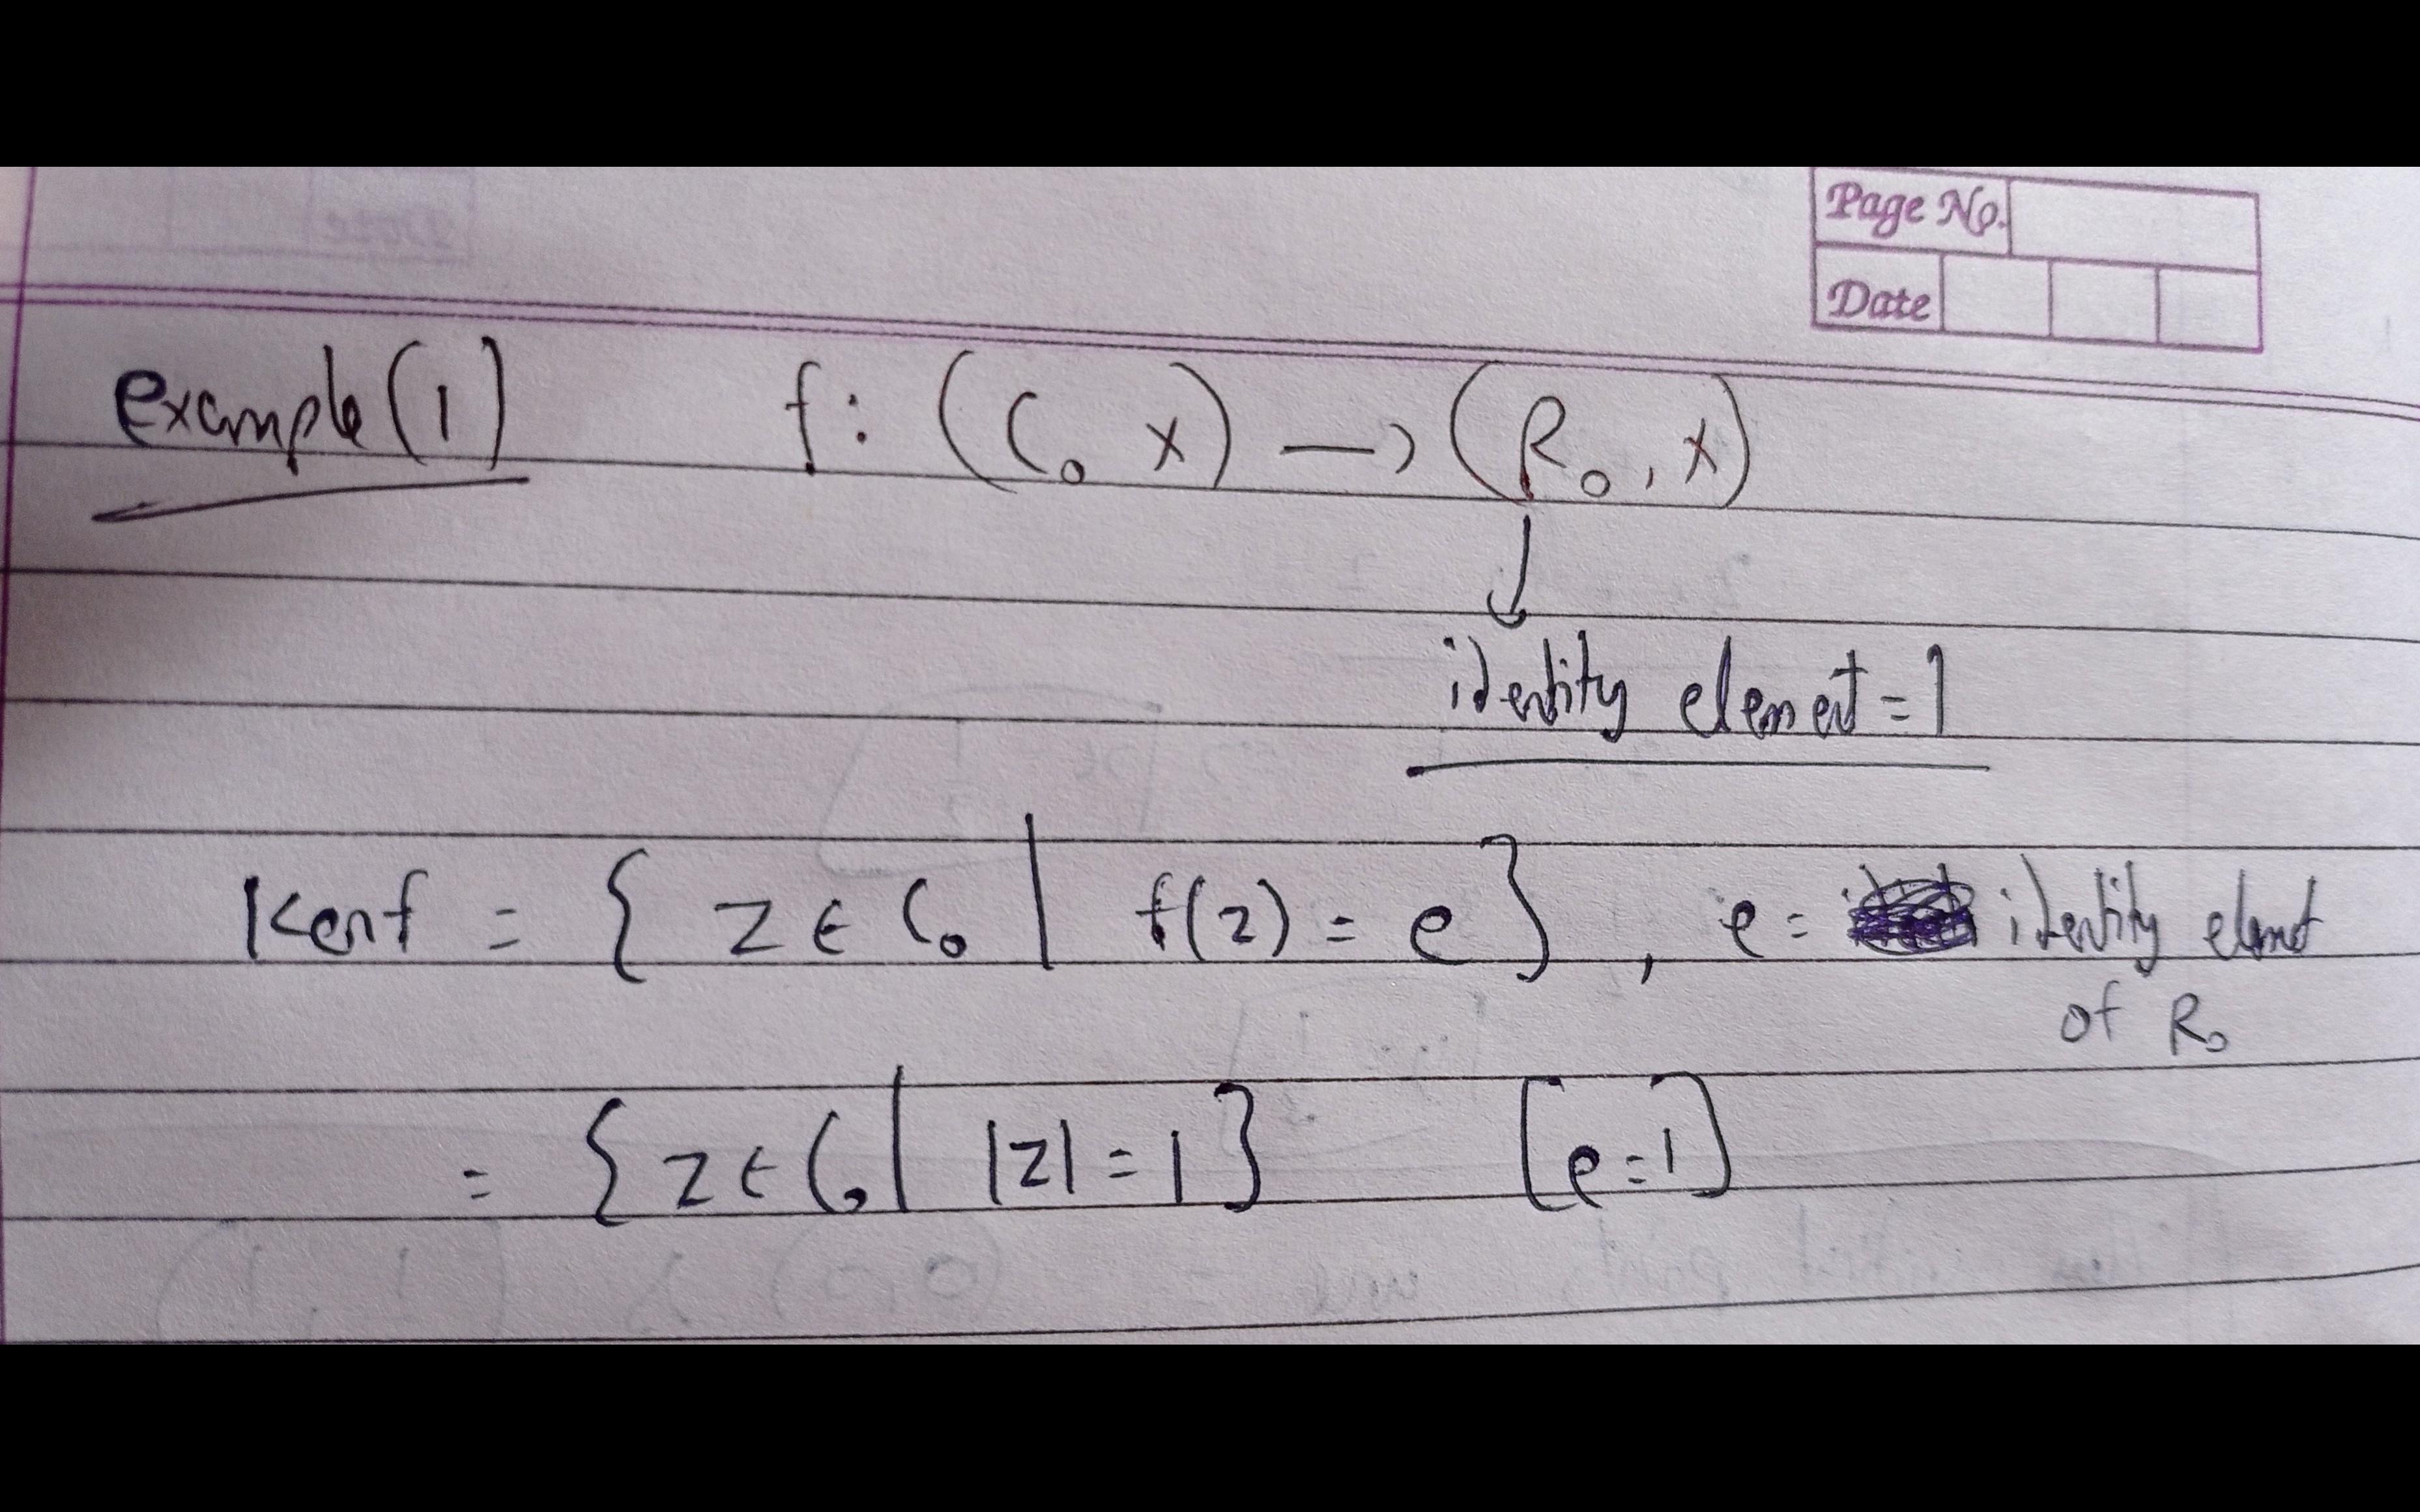 Page No.
Date
example (1) f: (C₀ x) → (R₀, x)
↓
identity element = 1
Kerf = { z ∈ C₀ | f(z) = e } , e = identity elemet
of R₀
= { z ∈ C₀ | |z| = 1 } [e = 1]